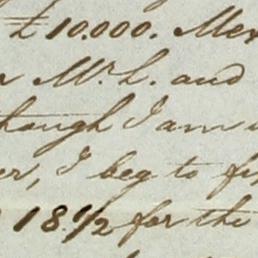 £10.000. Mer
Mr. L. and
though I am
er, I beg to
18 1/2 for the